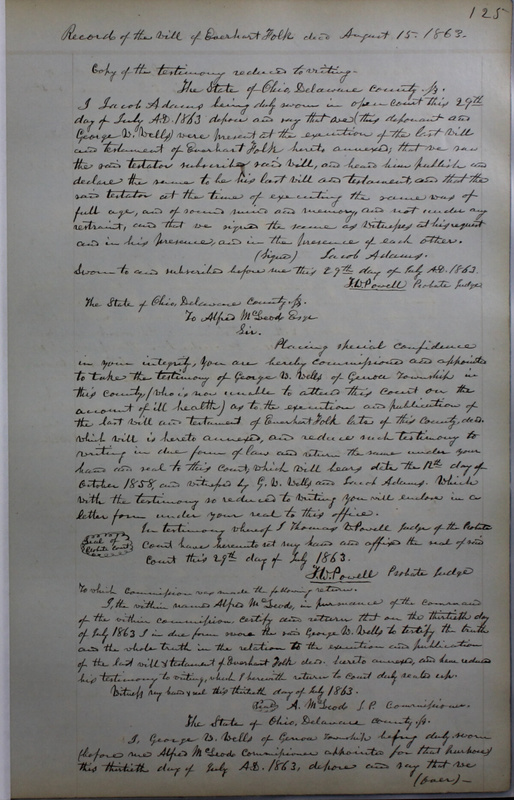 125
Record of the Will of Everhart Folk decd August 15. 1863.
Copy of the testimony reduced to writing.
The State of Ohio, Delaware County, ss.
I Jacob Adams being duly sworn in open court this 29th
day of July A.D. 1863 depose and say that we (this deponant and
George W. Wells) were present at the execution of the last Will
and testament of Everhart Folk hereto annexed, that we saw
the said testator subscribe said will, and heard him publish and
declare the same to be his last will and testament, and that the
said testator at the time of executing the same was of
full age, and of sound mind and memory, and not under any
restraint, and that we signed the same as witnesses at his request
and in his presence, and in the presence of each other.
(Signed) Jacob Adams.
Sworn to and subscribed before me this 29th day of July A.D. 1863.
T.W. Powell Probate Judge
The State of Ohio, Delaware County, ss.
To Alfred McLeod Esqr
Sir.
Placing special confidence
in your integrity, You are hereby commissioned and appointed
to take the testimony of George W. Wells of Genoa Township in
this county, (who is now unable to attend this Court on the
account of ill health) as to the execution and publication of
the last will and testament of Everhart Folk late of this County, decd.
which will is hereto annexed, and reduce such testimony to
writing in due form of law and return the same under your
hand and seal to this Court, which will bears date the 12th day of
October 1858, and witnessed by G. W. Wells and Jacob Adams. Which
with the testimony so reduced to writing you will enclose in a
letter form under your seal to this office.
In testimony whereof I Thomas W Powell Judge of the Probate
Seal of Probate Court
Court have hereunto set my hand and affixed the seal of said
Court this 29th day of July 1863.
T.W. Powell Probate Judge
To which Commission was made the following return.
I, the within named Alfred McLeod, in pursuance of the command
of the within commission certify and return that on the thirtieth day
of July 1863 I in due form swore the said George W. Wells to testify the truth
and the whole truth in the relation to the execution and publication
of the last will & testament of Everhart Folk decd. hereto annexed, and have reduced
his testimony to writing, which I herewith return to Court duly sealed up.
Witness my hand & seal this thirtieth day of July 1863.
(Seal) A. McLeod J.P. Commissioner.
The State of Ohio, Delaware County, ss.
I, George W. Wells of Genoa Township being duly sworn
(before me Alfred McLeod Commissioner appointed for that purpose)
this thirtieth day of July A.D. 1863, depose and say that we
(over)